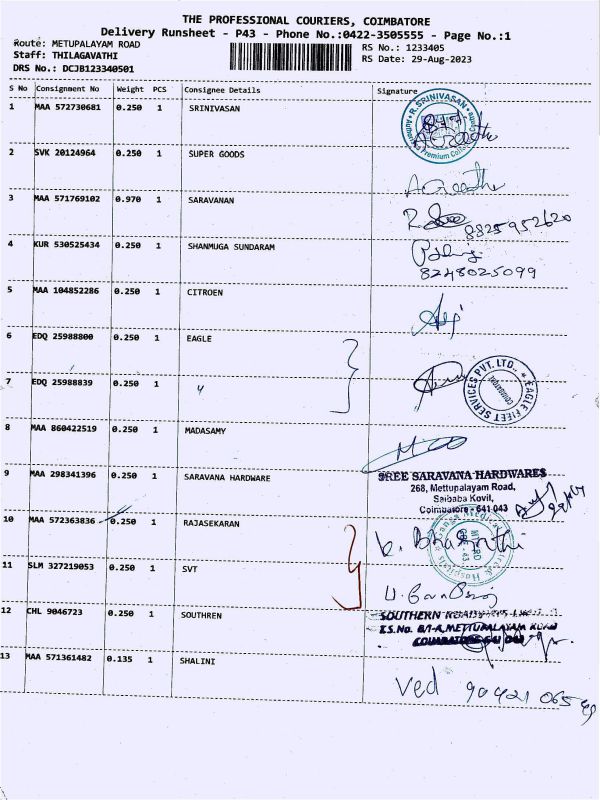 THE PROFESSIONAL COURIERS, COIMBATORE
Delivery Runsheet - P43 - Phone No.:0422-3505555 - Page No.:1
Route: METUPALAYAM ROAD
Staff: THILAGAVATHI
DRS No.: DCJB123340501
RS No.: 1233405
RS Date: 29-Aug-2023
S No Consignment No Weight PCS Consignee Details Signature
1 MAA 572730681 0.250 1 SRINIVASAN
R.SRINIVASAN
2 SVK 20124964 0.250 1 SUPER GOODS
3 MAA 571769102 0.970 1 SARAVANAN
8825952620
4 KUR 530525434 0.250 1 SHANMUGA SUNDARAM
8248025099
5 MAA 104852286 0.250 1 CITROEN
6 EDQ 25988800 0.250 1 EAGLE
7 EDQ 25988839 0.250 1 "
EAGLE FLEET SERVICES PVT. LTD.,
COIMBATORE
8 MAA 860422519 0.250 1 MADASAMY
9 MAA 298341396 0.250 1 SARAVANA HARDWARE
SREE SARAVANA HARDWARES
268, Mettupalayam Road,
Saibaba Kovil,
Coimbatore - 641 043
10 MAA 572363836 0.250 1 RAJASEKARAN
11 SLM 327219053 0.250 1 SVT
12 CHL 9046723 0.250 1 SOUTHREN
13 MAA 571361482 0.135 1 SHALINI
Ved